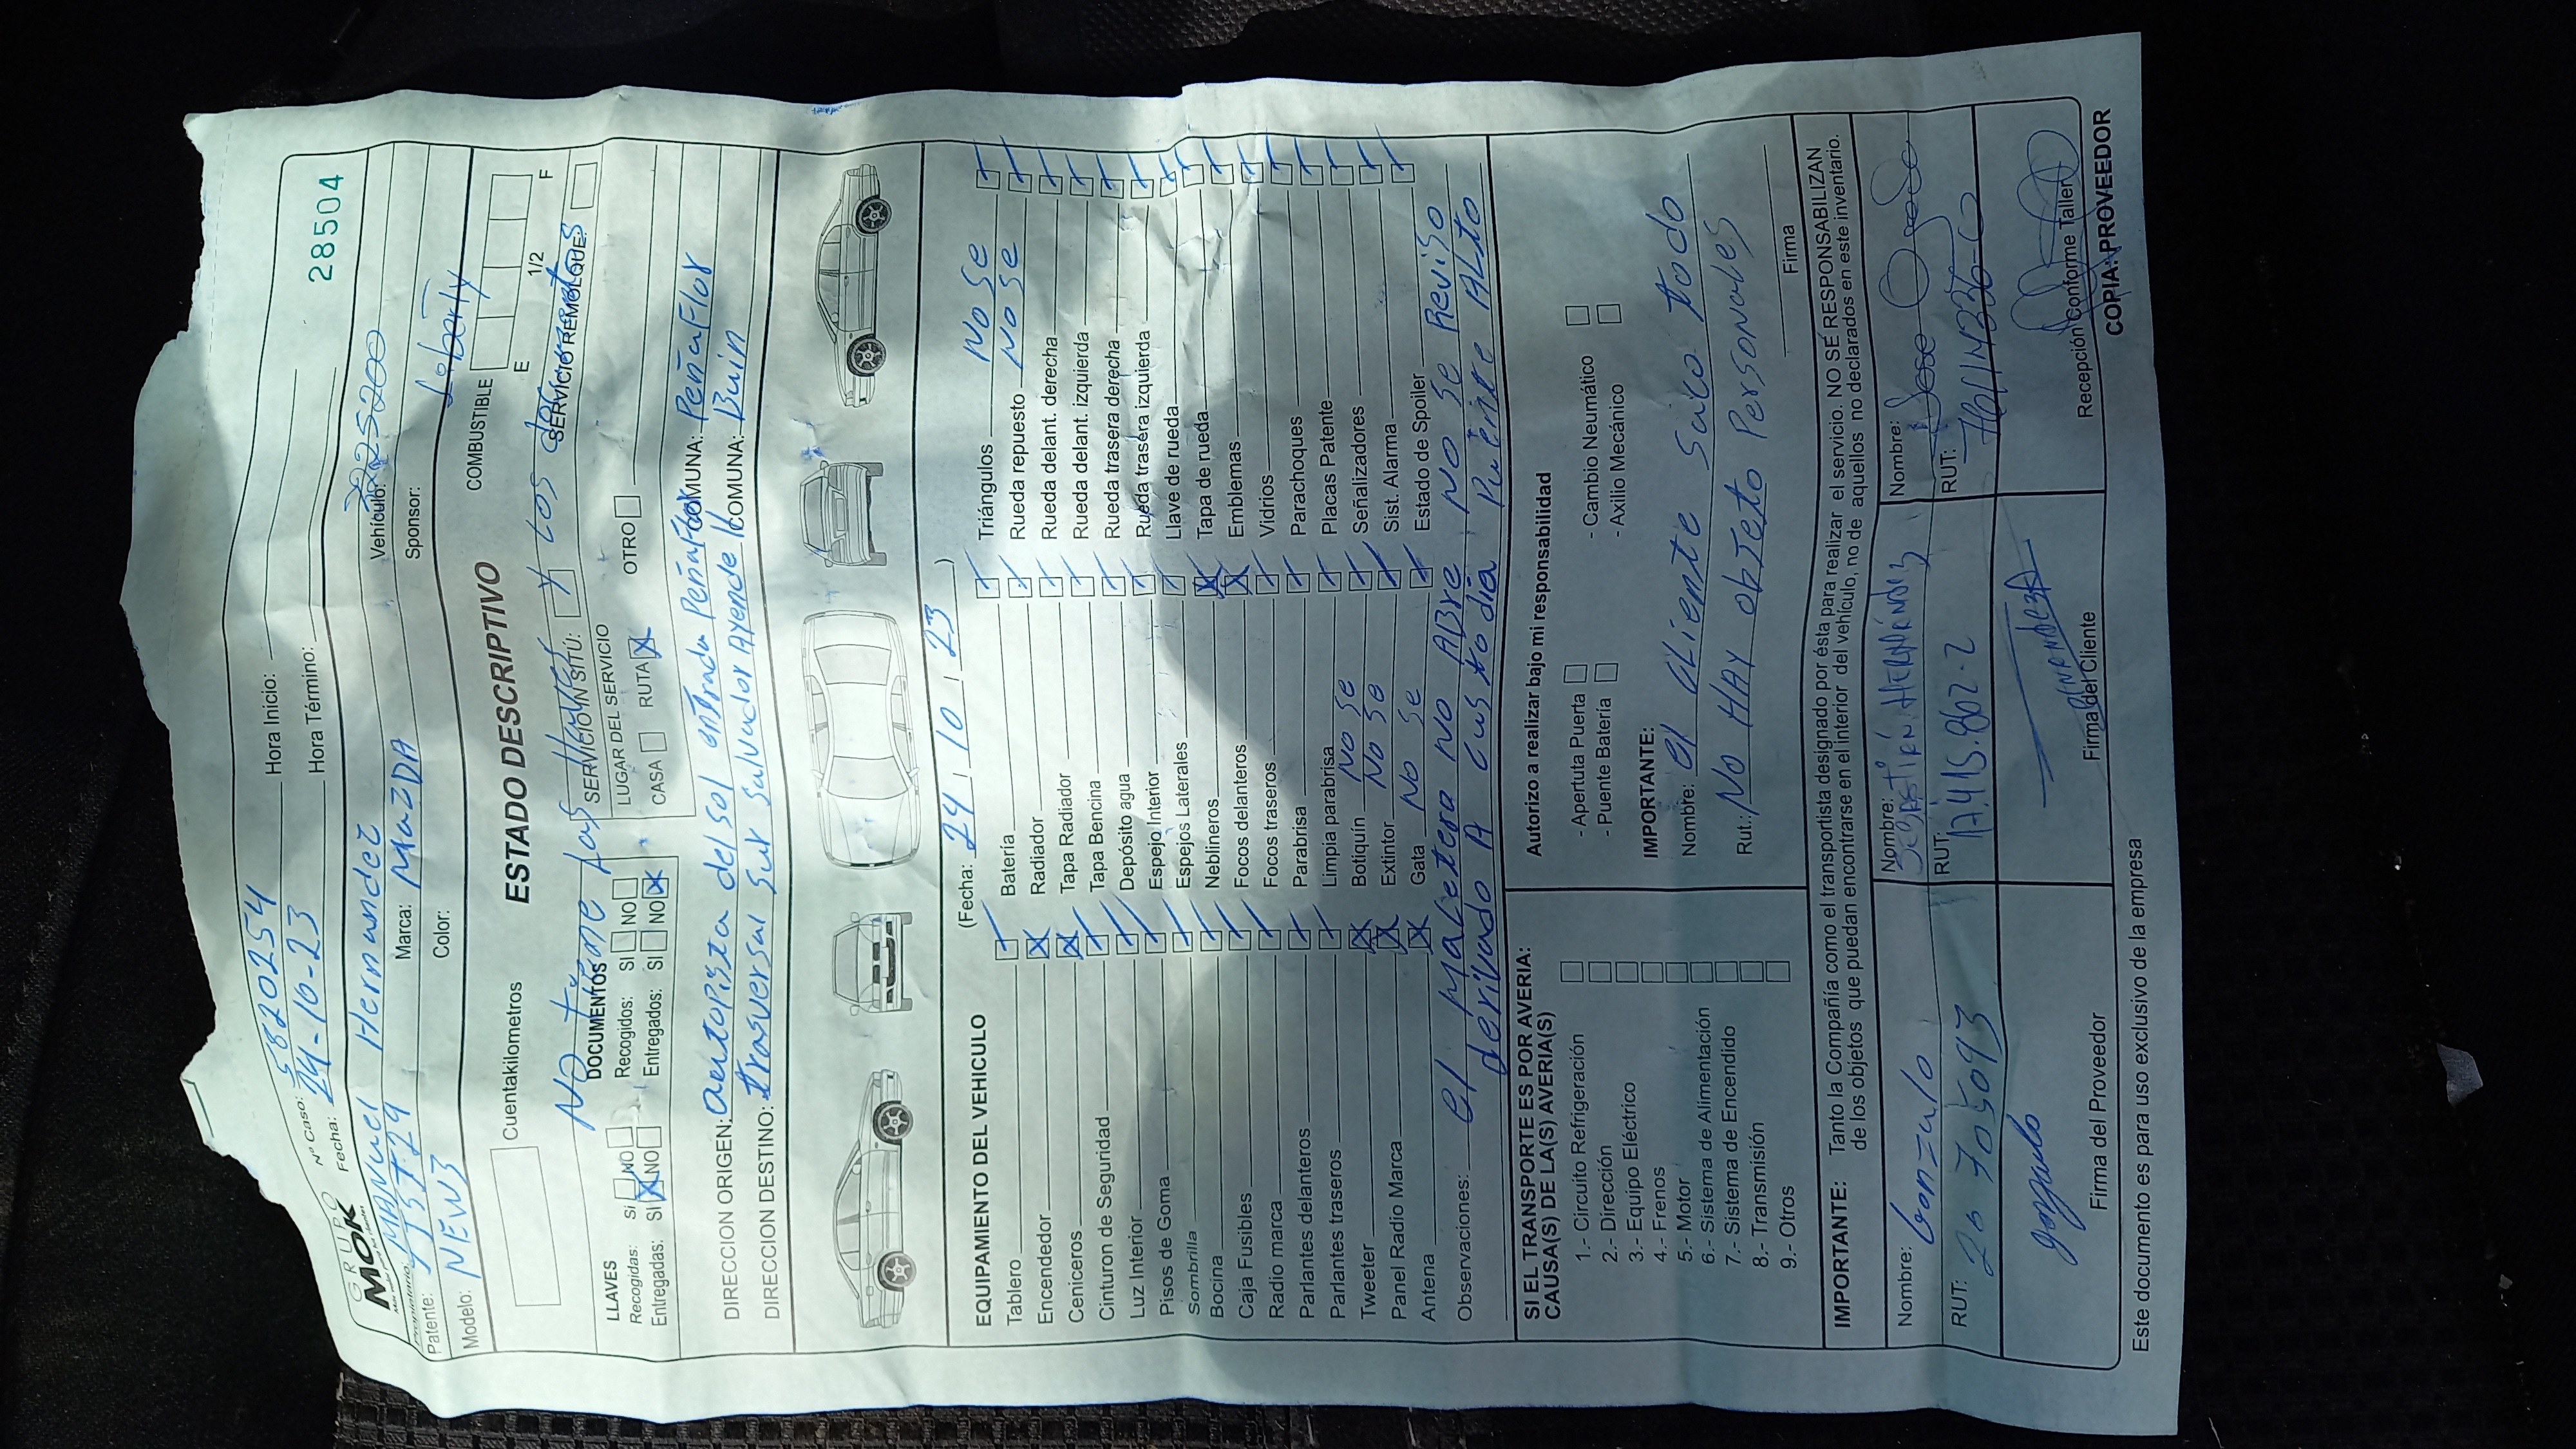 GRUPO
MOK
28504
Nº Caso: 5820254 Hora Inicio:
Fecha: 24-10-23 Hora Término:
Propietario: MANuel Hernandez Vehículo:
Patente: Marca: MazDA Sponsor: Liberty
Modelo: NEW 3 Color:
Cuentakilometros ESTADO DESCRIPTIVO COMBUSTIBLE
E 1/2 F
No tiene Las y Los documentos
LLAVES DOCUMENTOS SERVICIO IN SITÚ: SERVICIO REMOLQUE:
Recogidas: Si NO Recogidos: SI NO LUGAR DEL SERVICIO
Entregadas: SI NO Entregados: SI NO CASA RUTA OTRO
DIRECCION ORIGEN: autopista del sol entrada Peñaflor COMUNA: PeñaFlor
DIRECCION DESTINO: trasversal sur salvador Ayende COMUNA: Buin
EQUIPAMIENTO DEL VEHICULO (Fecha: 24 10 23 )
Tablero Batería Triángulos NO Se
Encendedor Radiador Rueda repuesto NO Se
Ceniceros Tapa Radiador Rueda delant. derecha
Cinturon de Seguridad Tapa Bencina Rueda delant. izquierda
Luz Interior Depósito agua Rueda trasera derecha
Pisos de Goma Espejo Interior Rueda trasera izquierda
Sombrilla Espejos Laterales Llave de rueda
Bocina Neblineros Tapa de rueda
Caja Fusibles Focos delanteros Emblemas
Radio marca Focos traseros Vidrios
Parlantes delanteros Parabrisa Parachoques
Parlantes traseros Limpia parabrisa Placas Patente
Tweeter Botiquín No Se Señalizadores
Panel Radio Marca Extintor No Se Sist. Alarma
Antena Gata No Se Estado de Spoiler
Observaciones: el Maletera NO ABre NO Se Reviso
derivado A custodia Puente Alto
SI EL TRANSPORTE ES POR AVERIA:
CAUSA(S) DE LA(S) AVERIA(S)
1.- Circuito Refrigeración
2.- Dirección
3.- Equipo Eléctrico
4.- Frenos
5.- Motor
6.- Sistema de Alimentación
7.- Sistema de Encendido
8.- Transmisión
9.- Otros
Autorizo a realizar bajo mi responsabilidad
- Apertuta Puerta - Cambio Neumático
- Puente Batería - Axilio Mecánico
IMPORTANTE:
Nombre: el cliente saco todo
Rut.: No HAy objeto Personales
Firma
IMPORTANTE: Tanto la Compañía como el transportista designado por ésta para realizar el servicio. NO SE RESPONSABILIZAN
de los objetos que puedan encontrarse en el interior del vehículo, no de aquellos no declarados en este inventario.
Nombre: Gonzalo Nombre: SEBASTIÁN HERNÁNDEZ Nombre: Jose
RUT: 20 705093 RUT: 17.415.862-2 RUT:
gonzalo HERNANDEZ
Firma del Proveedor Firma del Cliente Recepción Conforme Taller
Este documento es para uso exclusivo de la empresa COPIA: PROVEEDOR